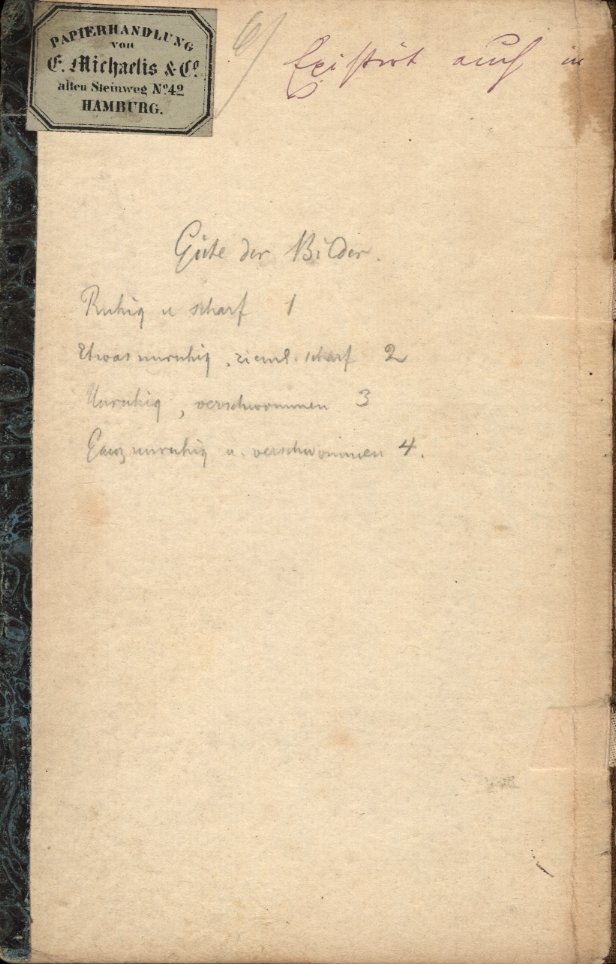 PAPIERHANDLUNG
von
E. Michaelis & Co
alten Steinweg No. 42
HAMBURG.
Existirt auch in
Güte der Bilder.
Ruhig u scharf 1
Etwas unruhig, zieml. scharf 2
Unruhig, verschwommen 3
Ganz unruhig u. verschwommen 4.